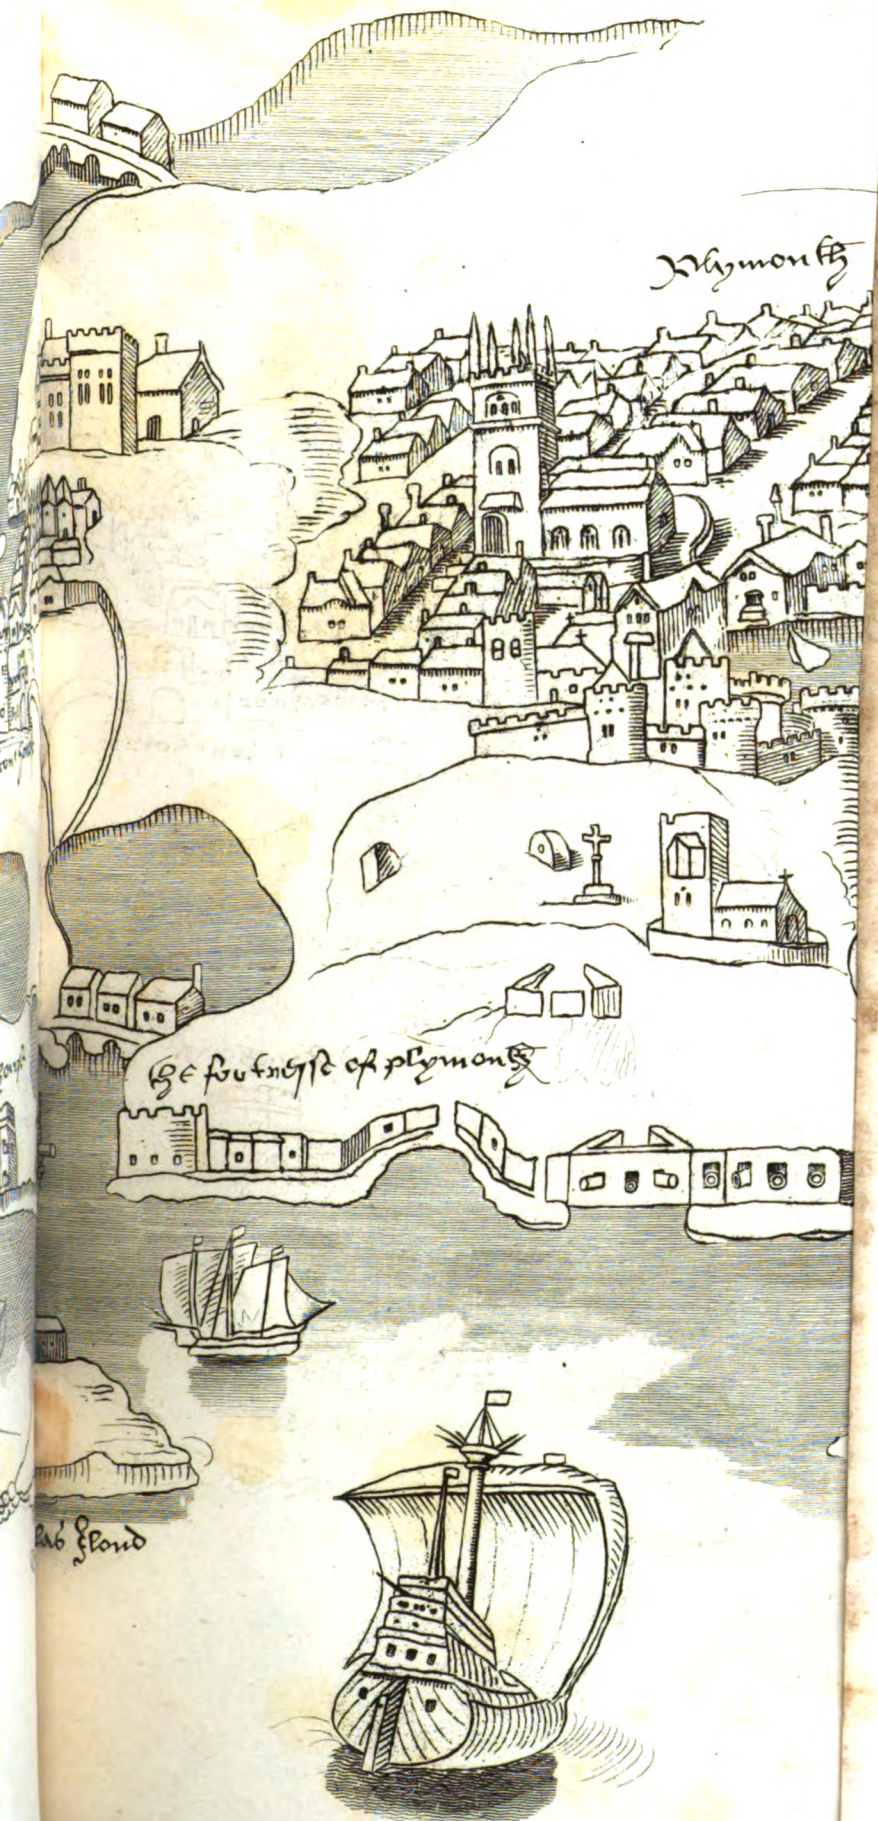 Plymouth
the fortresse of plymouth
las Ilond